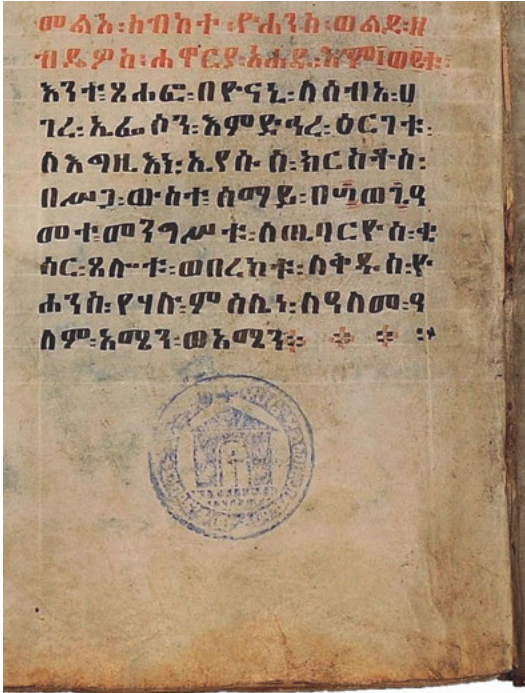 መልአ፡ስብከተ፡ዮሐንስ፡ወልደ፡ዘ
ብዴዎስ፡ሐዋርያ፡አሐዱ፡እም፲ወ፪ቱ፡
እንተ፡ጸሐፎ፡በዮናኒ፡ለሰብአ፡ሀ
ገረ፡ኤፌሶን፡እምድኅረ፡ዕርገቱ፡
ለእግዚእነ፡ኢየሱስ፡ክርስቶስ፡
በሥጋ፡ውስተ፡ሰማይ፡
መተ፡መንግሥቱ፡ለጢባርዮስ፡ቄ
ሳር፡ጸሎቱ፡ወበረከቱ፡ለቅዱስ፡ዮ
ሐንስ፡የሃሉ፡ምስሌነ፡ለዓለመ፡ዓ
ለም፡አሜን፡ወአሜን።